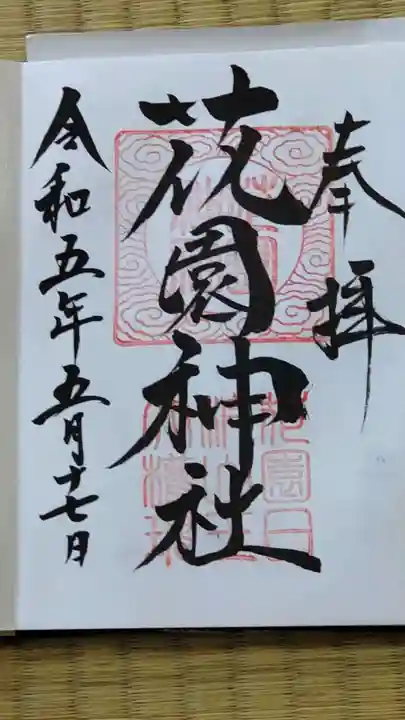 奉拝
花園神社
令和五年五月十七日